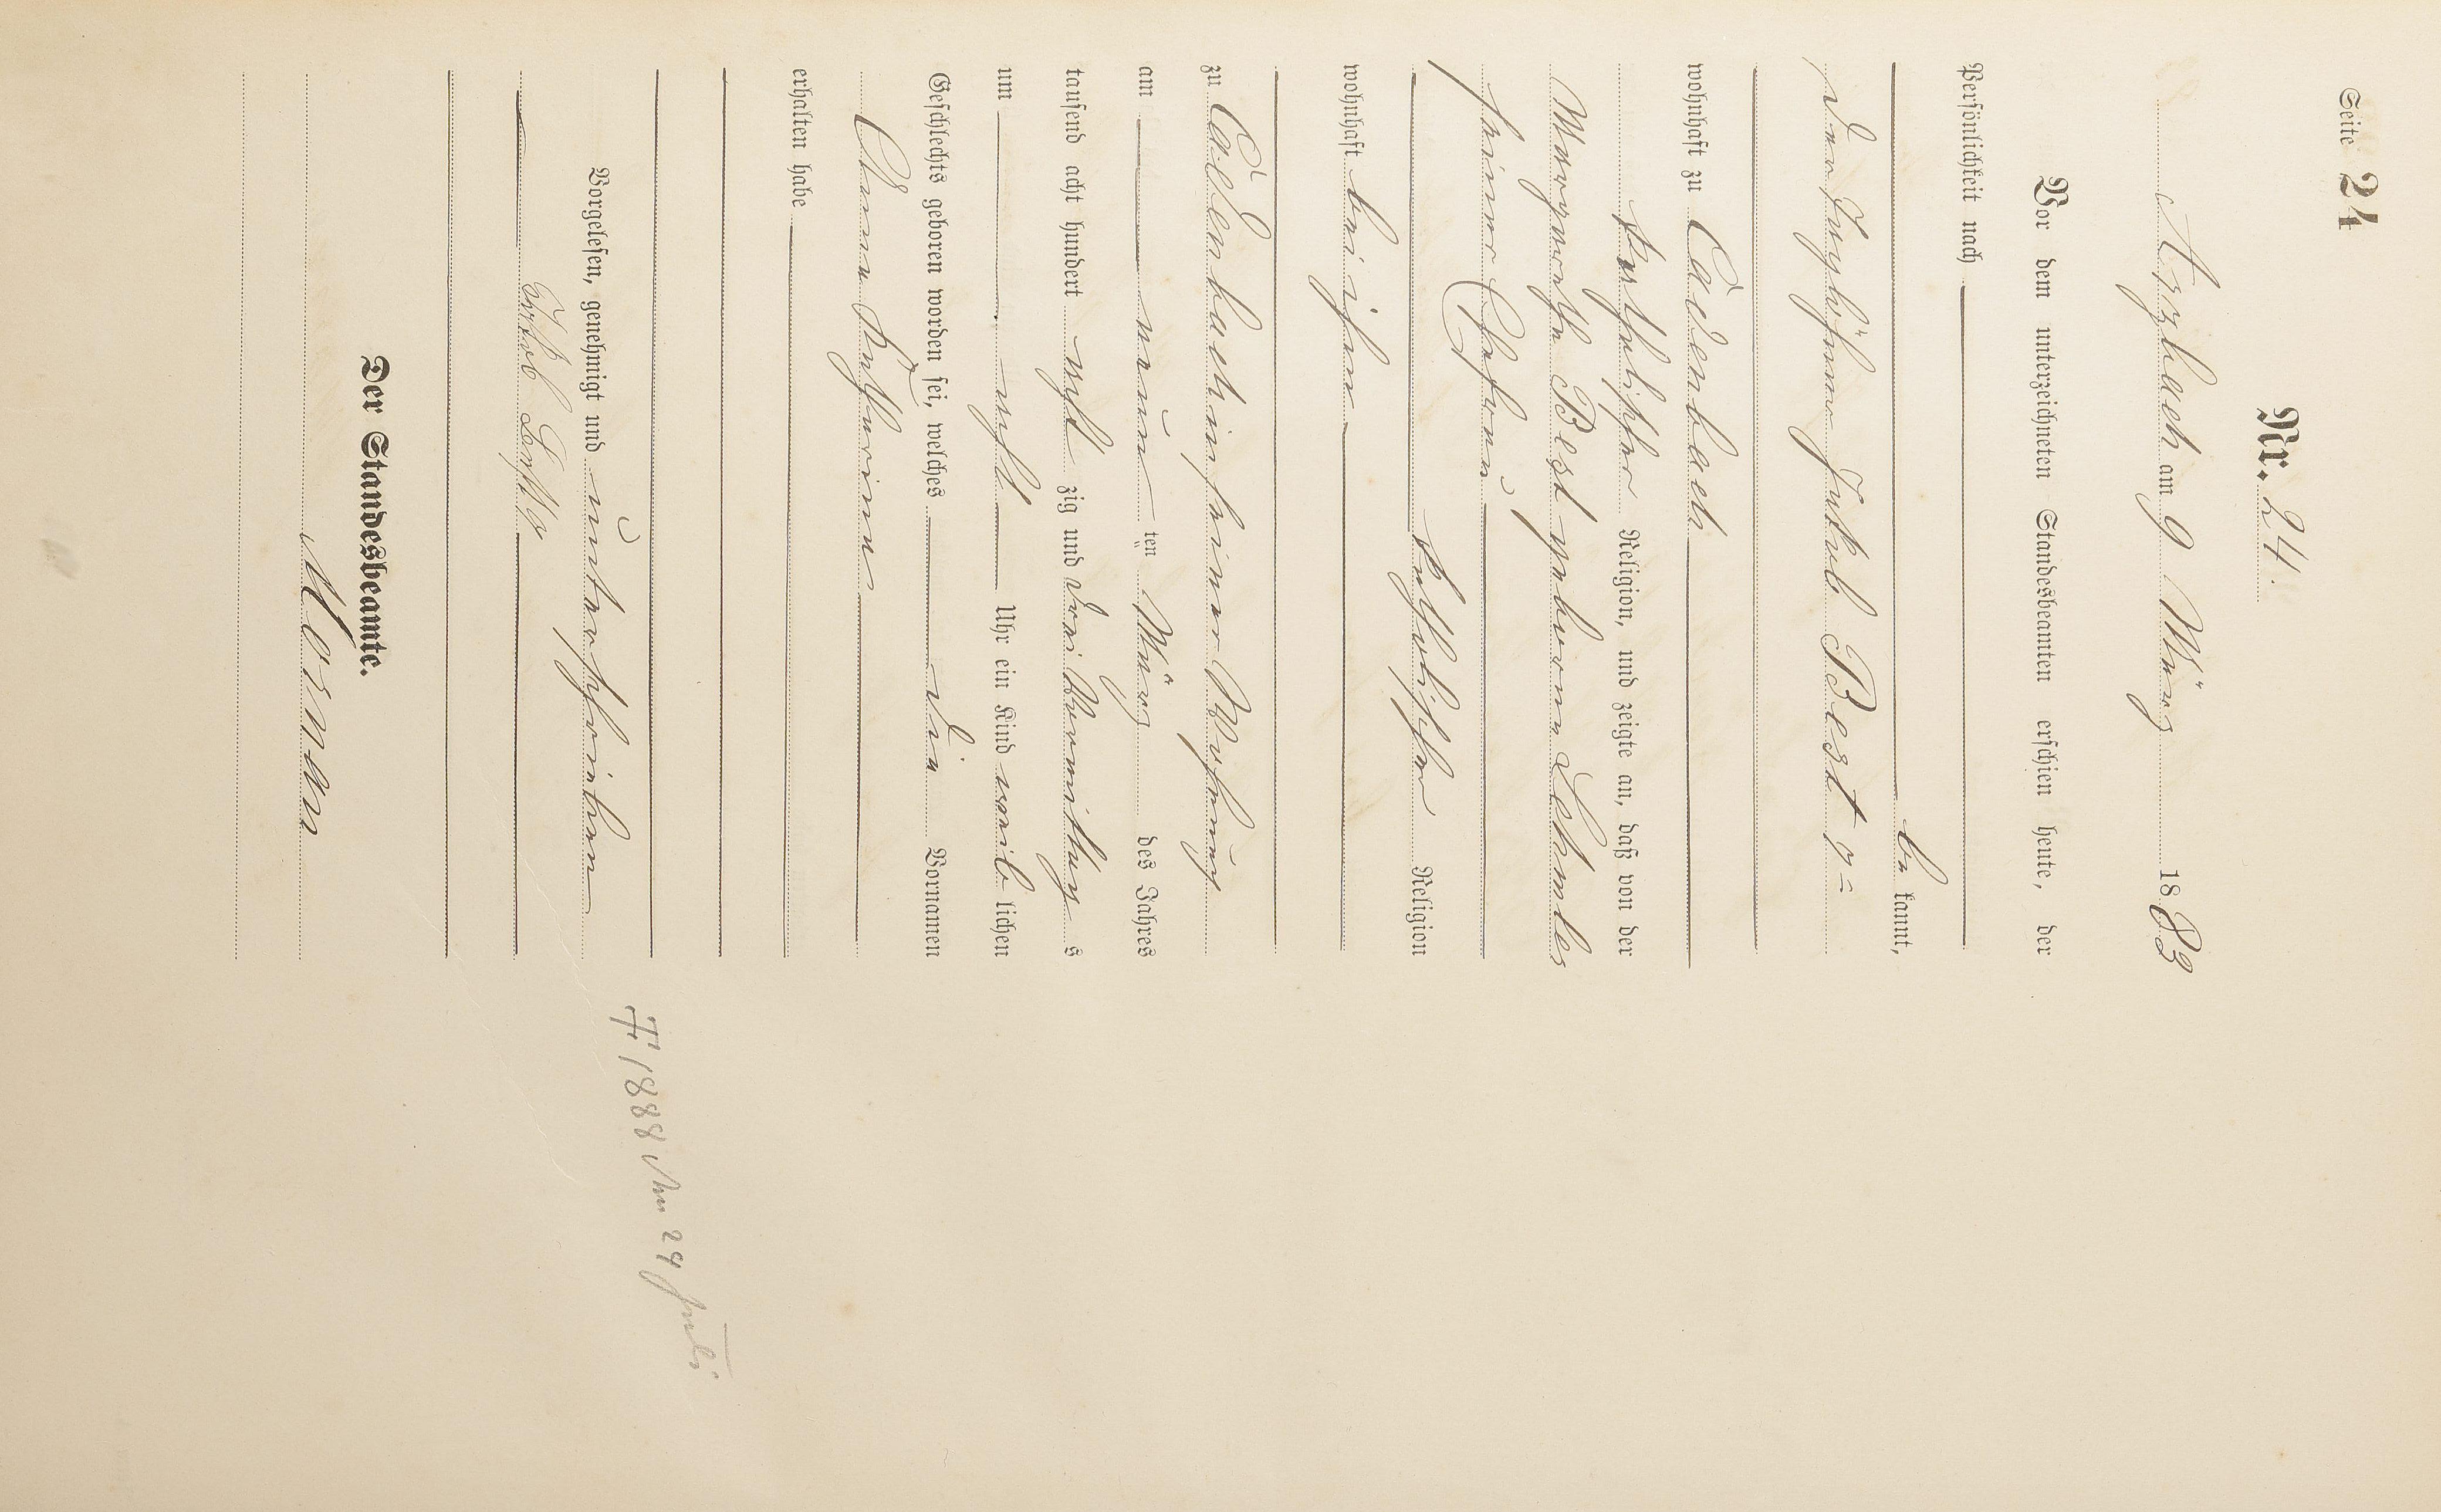 Seite 24
Nr. 24.
Arzbach am 9 März 1883
Vor dem unterzeichneten Standesbeamten erschien heute, der
Persönlichkeit nach
be kannt,
der Taglöhner Jakob Best
wohnhaft zu Cadenbach
katholischer Religion, und zeigte an, daß von der
Margarethe Best geborne
seiner Ehefrau
katholischer Religion
wohnhaft bei ihm
zu Cadenbach in seiner Wohnung
am neun ten März des Jahres
tausend acht hundert acht zig und drei Vormittags s
um acht Uhr ein Kind weib lichen
Geschlechts geboren worden sei, welches die Vornamen
Anna Katharina
erhalten habe
Vorgelesen, genehmigt und unterschrieben
Jakob
Der Standesbeamte.
† 1888 den 24 Juli